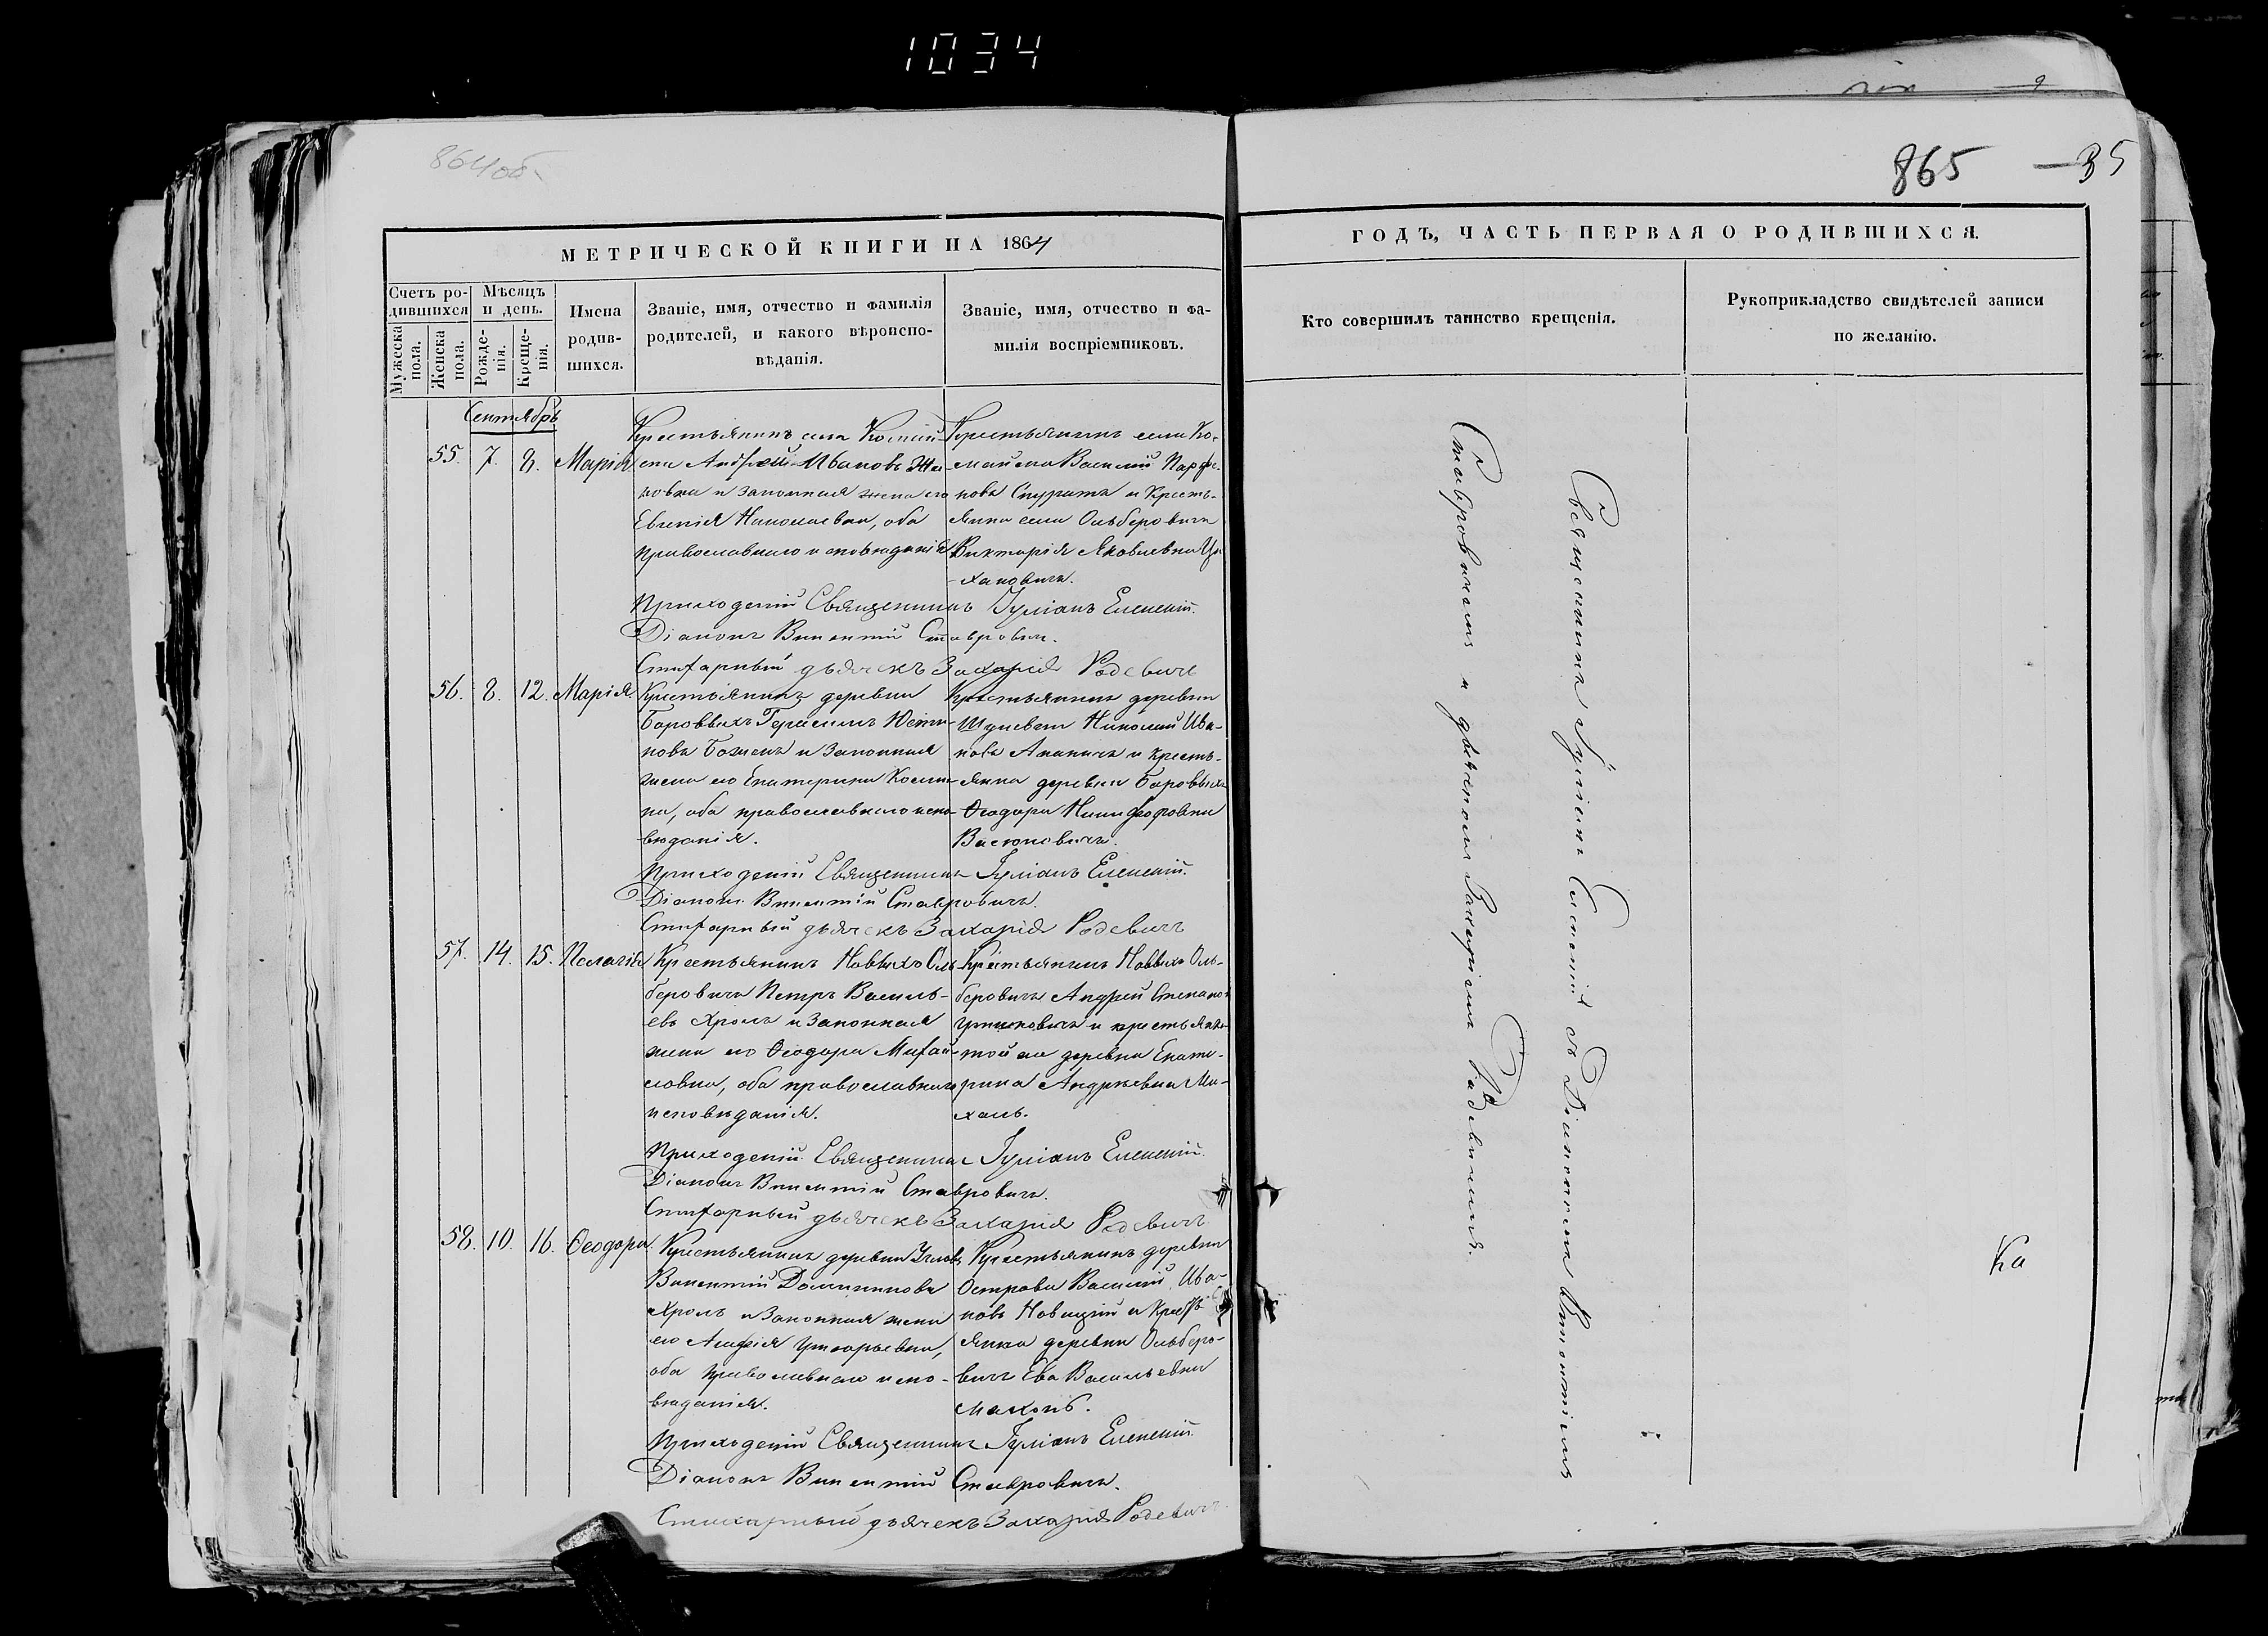 1034
864об.
865 — 35
МЕТРИЧЕСКОЙ КНИГИ НА 1864
Счетъ ро-
дившихся
Мужеска
пола.
Женска
пола.
Мѣсяцъ
и день.
Рожде-
нія.
Креще-
нія.
Имена
родив-
шихся.
Званіе, имя, отчество и фамилія
родителей, и какого вѣроиспо-
вѣданія.
Званіе, имя, отчество и фа-
милія воспріемниковъ.
Сентябрь
55. 7. 8. Марія
Крестьянинъ села
Андрей Ивановъ
и законная жена его
Евгенія Николаевна, оба
православнаго исповѣданія
Крестьянинъ села Ко-
Василій Парфе-
новъ и кресть-
янка села Ольберовичъ
Викторія Яковлевна
хановичъ.
Приходскій Священникъ Іуліанъ Еленскій.
Діаконъ Викентій Ставровичъ.
Стихарный дьячекъ Захарія Родевичъ
56. 8. 12. Марія
Крестьянинъ деревни
Боровыхъ Герасимъ Юсти-
новъ и законная
жена его Екатерина Косми-
на, оба православнаго испо-
вѣданія.
Крестьянинъ деревни
Николай Ива-
новъ Ананичъ и кресть-
янка деревни Боровыхъ
Ѳеодора Никифоровна
Васюковичъ.
Приходскій Священникъ Іуліанъ Еленскій.
Діаконъ Викентій Ставровичъ.
Стихарный дьячекъ Захарія Родевичъ
57. 14. 15. Пелагія
Крестьянинъ Новыхъ Оль-
беровичъ Петръ Василь-
евъ Хроль и законная
жена его Ѳеодора Михай-
ловна, оба православнаго
исповѣданія.
Крестьянинъ Новыхъ Оль-
беровичъ Андрей Степановъ
и крестьянка
той же деревни Екате-
рина Андреевна Ми-
халь.
Приходскій Священникъ Іуліанъ Еленскій.
Діаконъ Викентій Ставровичъ.
Стихарный дьячекъ Захарія Родевичъ
58. 10. 16. Ѳеодора
Крестьянинъ деревни
Викентій Доминиковъ
Хроль и законная жена
его Агафія Григорьевна,
оба православнаго испо-
вѣданія.
Крестьянинъ деревни
Острова Василій Ива-
новъ Новицкій и крестъ
янка деревни Ольберо-
вичъ Ева Васильевна
Приходскій Священникъ Іуліанъ Еленскій
Діаконъ Викентій Ставровичъ.
Стихарный дьячекъ Захарія Родевичъ
ГОДЪ, ЧАСТЬ ПЕРВАЯ О РОДИВШИХСЯ.
Кто совершилъ таинство крещенія.
Рукоприкладство свидѣтелей записи
по желанію.
Священникъ Іуліанъ Еленскій съ Діакономъ Викентіемъ
Ставровичемъ и дьячкомъ Захаріемъ Радевичемъ.
Ка